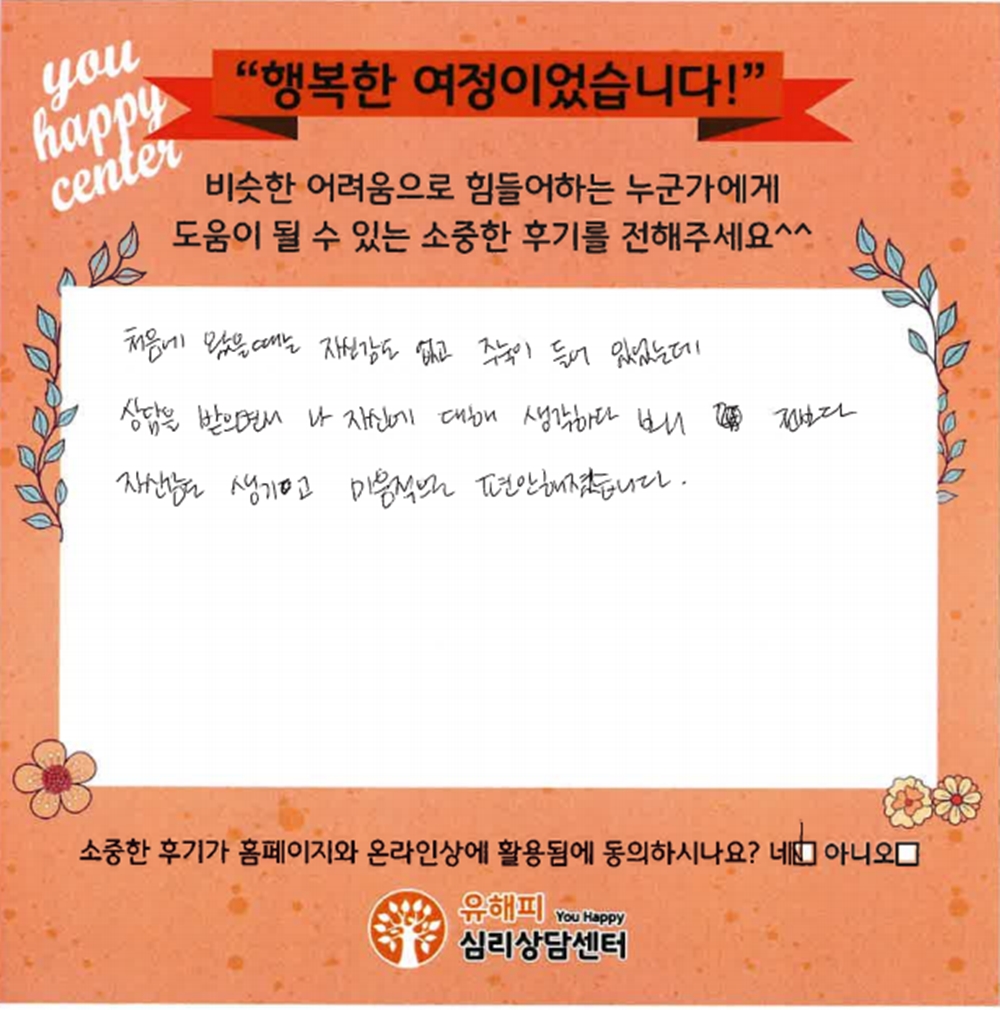 you
happy
center
“행복한 여정이었습니다!”
비슷한 어려움으로 힘들어하는 누군가에게
도움이 될 수 있는 소중한 후기를 전해주세요^^
처음에 왔을때는 자신감도 없고 주눅이 들어 있었는데
상담을 받으면서 나 자신에 대해 생각하다 보니 전보다
자신감도 생기고 마음적으로 편안해졌습니다.
소중한 후기가 홈페이지와 온라인상에 활용됨에 동의하시나요? 네 아니오
유해피 You Happy
심리상담센터